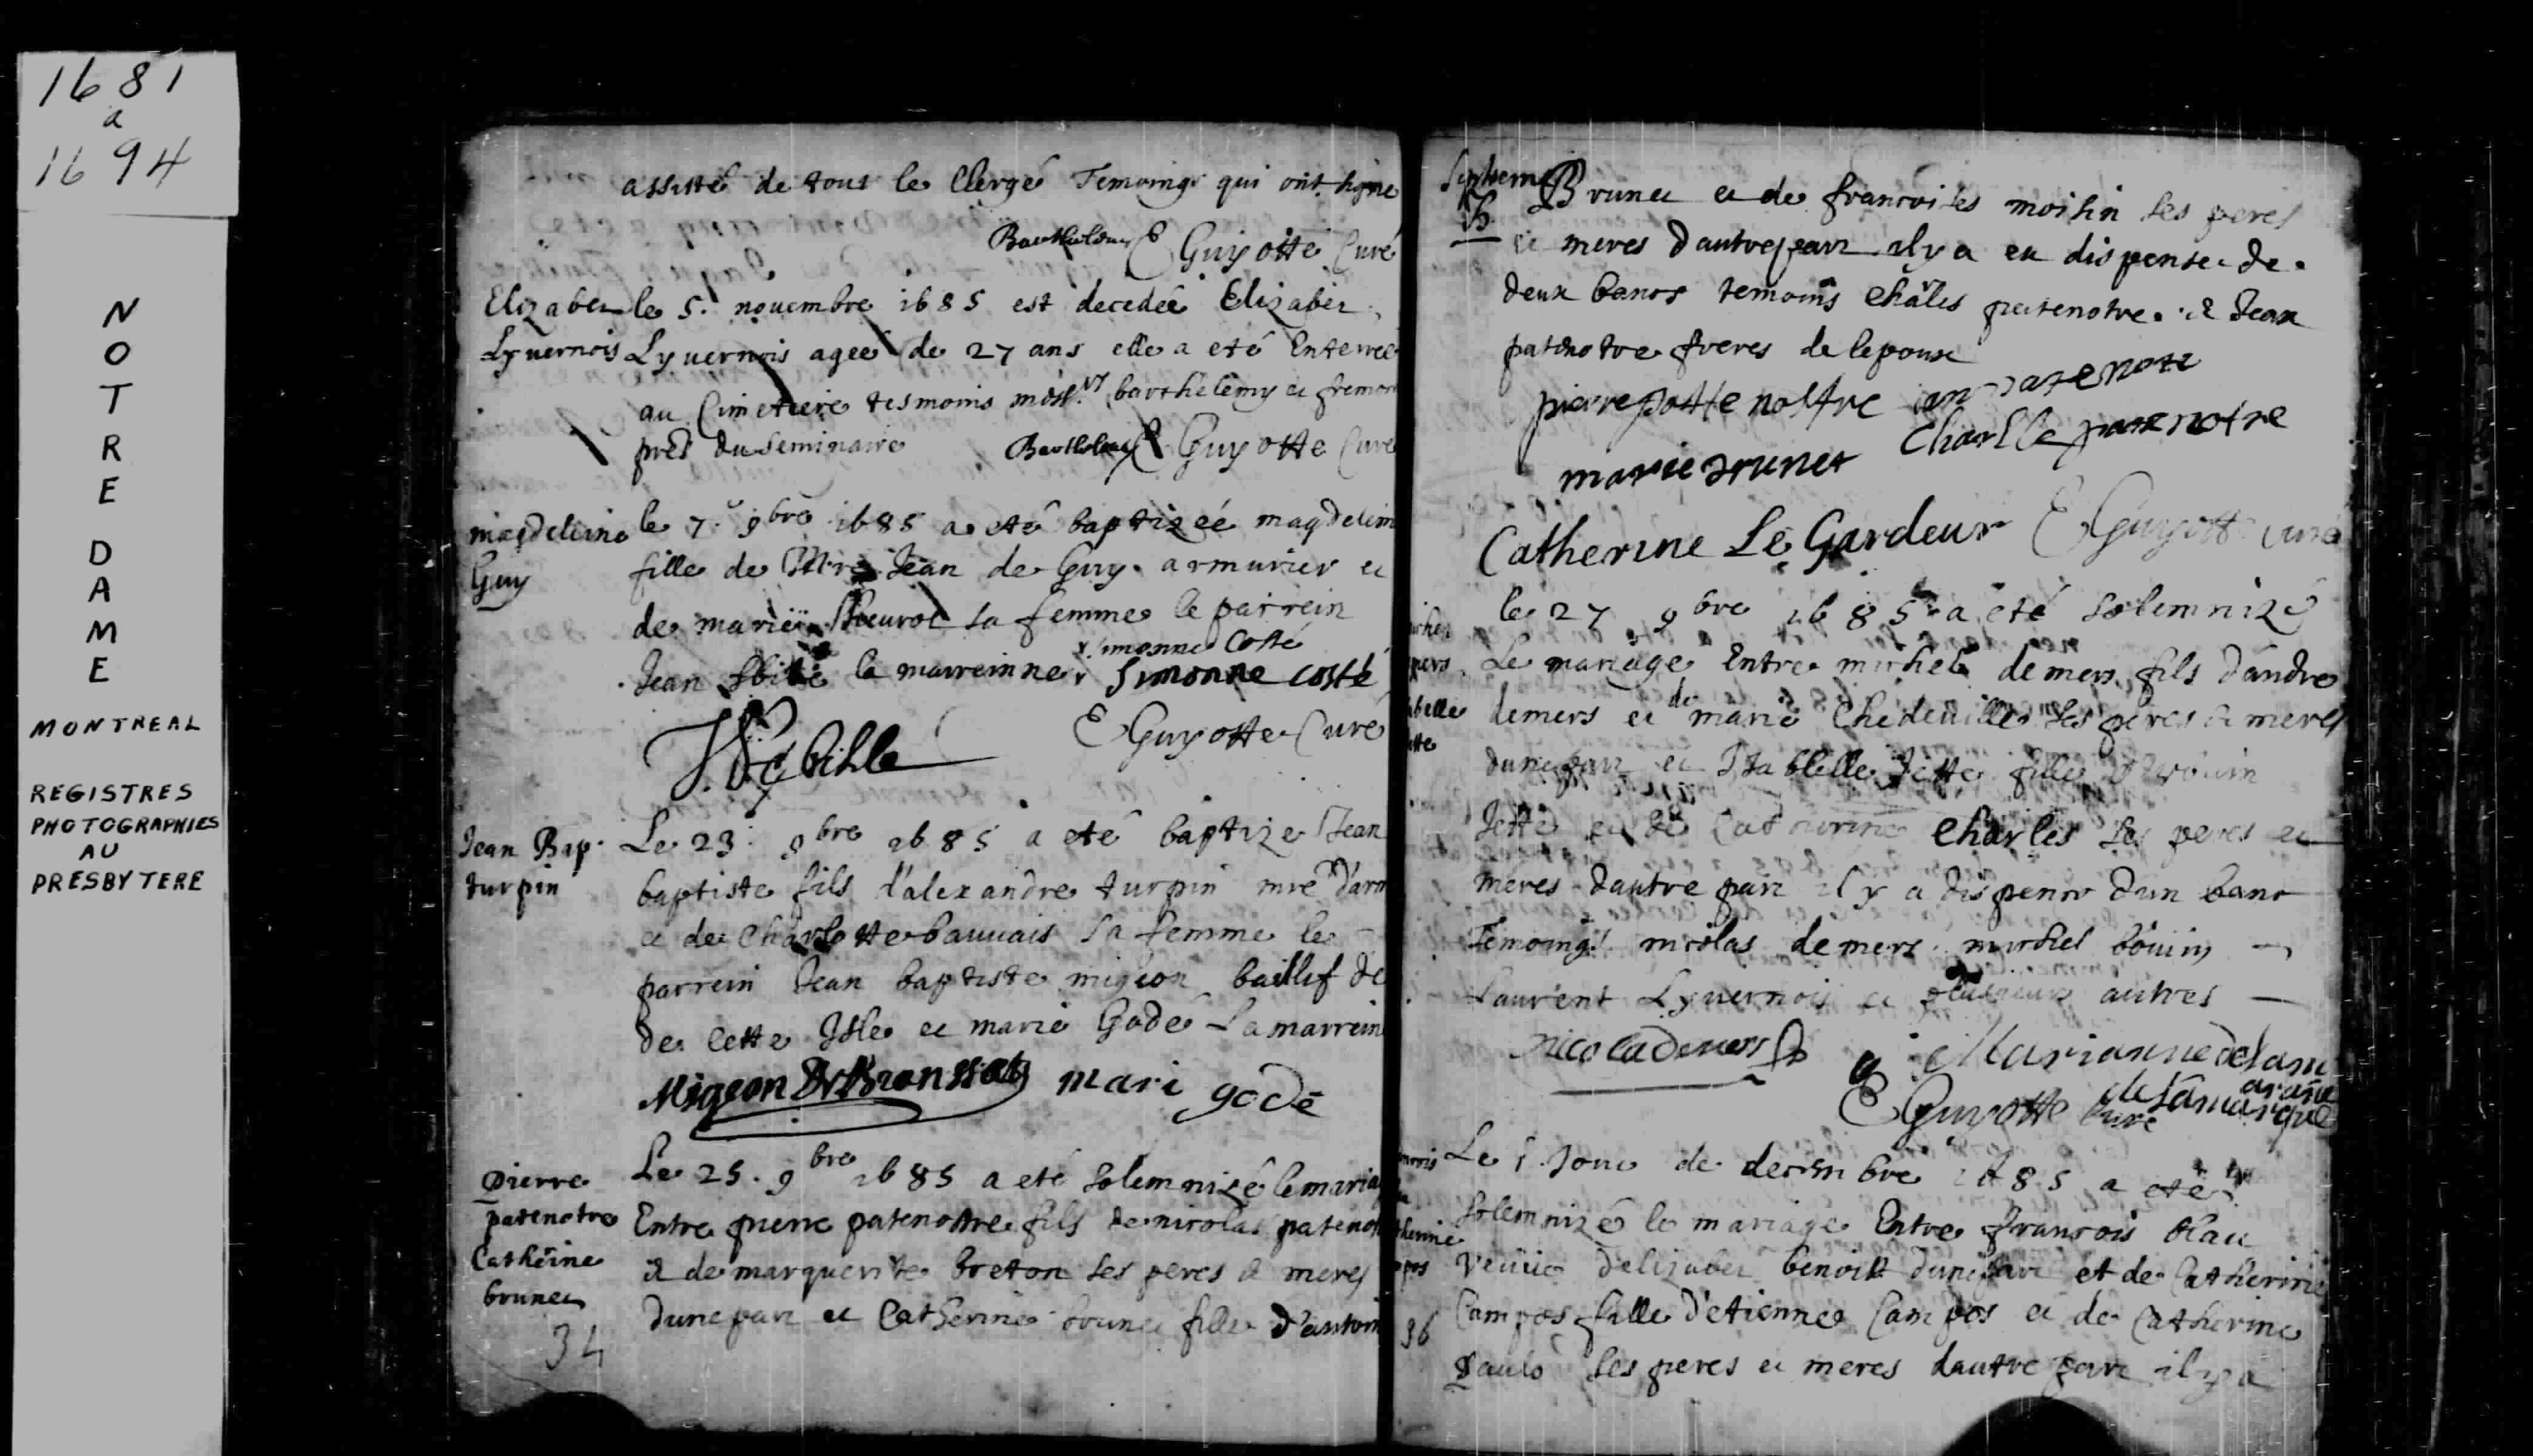 1681
a
1694
NOTRE
DAME
MONTREAL
REGISTRES
PHOTOGRAPHIES
AU
PRESBYTERE
assisté de tout le Clergé Temoings qui ont signé
Barthelemy E Guyotte Curé
Elizabet
Lyvernois
le 5. novembre 1685 est decedée Elizabet
Lyvernois agée de 27 ans elle a eté Enterrée
au Cimetiere tesmoins mess.rs barthelemy et fremon
pres du seminaire Barthelemy E Guyotte Curé
magdeleine
Guy
le 7. 9bre 1685 a eté baptizée magdelein
fille de Mre Jean de Guy armurier et
de marie sa femme le parrein
simonne Costé
Jean la marreinne simonne costé
E Guyotte Curé
Jean Bap.
turpin
Le 23. 9bre 1685 a eté baptize Jean
baptiste fils d'alexandre turpin mre d'arm
et de Charlotte bauvais sa femme le
parrein Jean baptiste migeon baillif de
de cette Isle et marie Godé la marrein
Migeon De Branssat mari godé
pierre
patenotre
Catherine
brunet
34
Le 25. 9bre 1685 a eté solemnizé le maria
Entre pierre patenostre fils de nicolas patenot
et de marguerite breton ses peres et meres
dune part et Catherine brunet fille d'antoin
Brunet et de francoises moisin ses peres
et meres dautre part il y a eu dispense de
deux bancs temoins Châles patenotre et Jean
patenotre freres de lepoux
pierre pattenostre jan patenotre
Charlle patenotre
marie brunet
Catherine Le Gardeur E Guyotte curé
le 27 9bre 1685 a eté solemnizé
Le mariage Entre michel demers fils d'andre
demers et de marie Chedeville ses peres et meres
dune part et Isabelle Jette fille d'urbain
Jette et de Catherine Charles ses peres et
meres dautre part il y a dispense dun banc
Temoings nicolas demers michel bouin
Laurent Lyvernois et plusieurs autres
nicola demers Marianne delamarque
delamarque
E Guyotte Curé
Le 1. Jour de decembre 1685 a eté
solemnizé le mariage Entre francois blau
veuve delizabet benoist dune part et de Catherine
36
Campos fille d'etienne Campos et de Catherine
Paulo ses peres et meres dautre part il y a